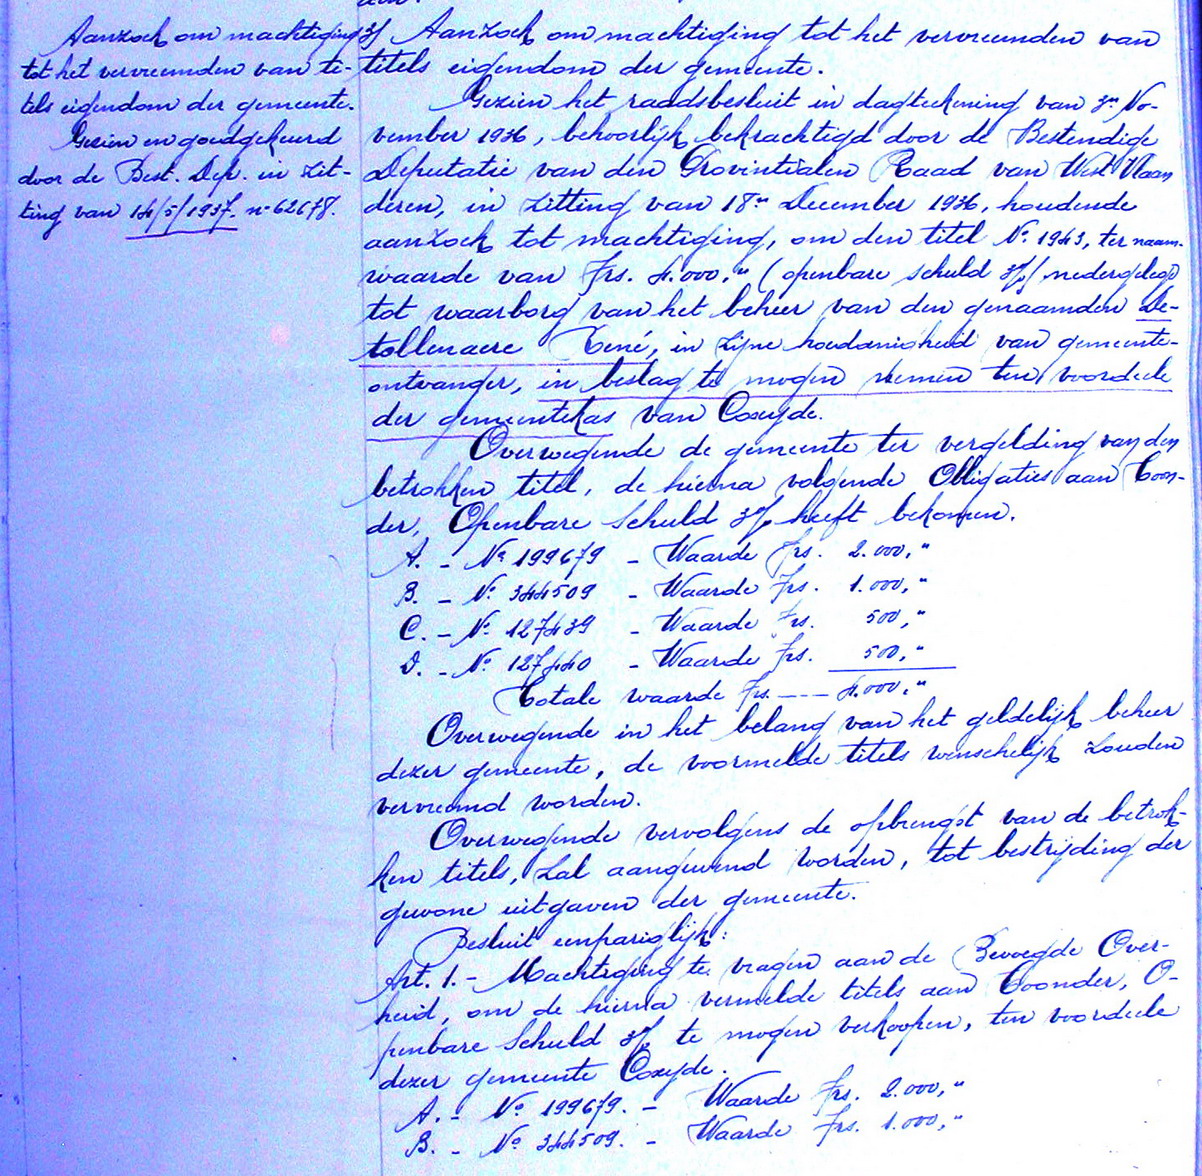 Aanzoek om machtiging
tot het vervreemden van ti-
tels eigendom der gemeente.
Gezien en goedgekeurd
door de Best. Dep. in zit-
ting van 14/5/1937. n° 62678.
3/ Aanzoek om machtiging tot het vervreemden van
titels eigendom der gemeente.
Gezien het raadsbesluit in dagteekening van 3en No-
vember 1936, behoorlijk bekrachtigd door de Bestendige
Deputatie van den Provintialen Raad van West Vlaan
deren, in zitting van 18en December 1936, houdende
aanzoek tot machtiging, om den titel N° 1943, ter naam-
waarde van frs. 4.000,“ (openbare schuld 3%) nedergelegd
tot waarborg van het beheer van den genaamden De-
tollenaere René, in zijne hoedanigheid van gemeente-
ontvanger, in beslag te mogen nemen ten voordeele
der gemeentekas van Coxyde.
Overwegende de gemeente ter vergelding van den
betrokken titel, de hierna volgende Obligaties aan Toon-
der, Openbare Schuld 3% heeft bekomen.
A. - N° 199679 - Waarde frs. 2.000,“
B. - N° 344509 - Waarde frs. 1.000,“
C. - N° 127439 - Waarde frs. 500,“
D. - N° 127440 - Waarde frs. 500,“
Totale waarde frs. --- 4.000,“
Overwegende in het belang van het geldelijk beheer
dezer gemeente, de voormelde titels wenschelijk zouden
vervreemd worden.
Overwegende vervolgens de opbrengst van de betrok-
ken titels, zal aangewend worden, tot bestrijding der
gewone uitgaven der gemeente.
Besluit eenpariglijk:
Art. 1. - Machtiging te vragen aan de Bevoegde Over-
heid, om de hierna vermelde titels aan Toonder, O-
penbare Schuld 3% te mogen verkoopen, ten voordeele
dezer gemeente Coxyde.
A. - N° 199679. - Waarde frs. 2.000,“
B. - N° 344509. - Waarde frs. 1.000,“